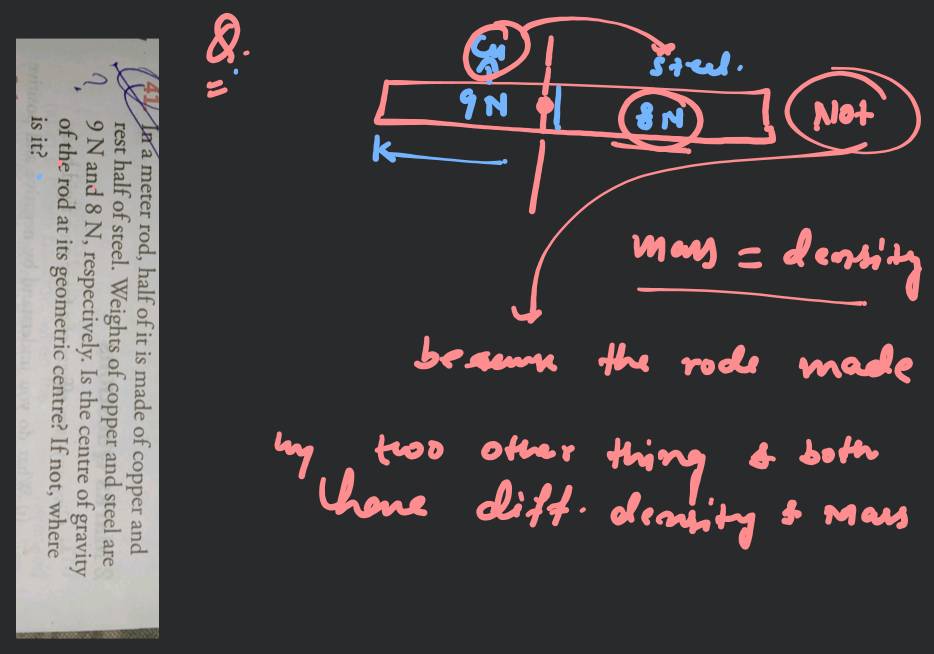 41. In a meter rod, half of it is made of copper and
rest half of steel. Weights of copper and steel are
9 N and 8 N, respectively. Is the centre of gravity
of the rod at its geometric centre? If not, where
is it?
?
Q.
steel.
9 N
8 N
Not
mass = density
the rode made
by two other thing & both
have diff. density & Mass